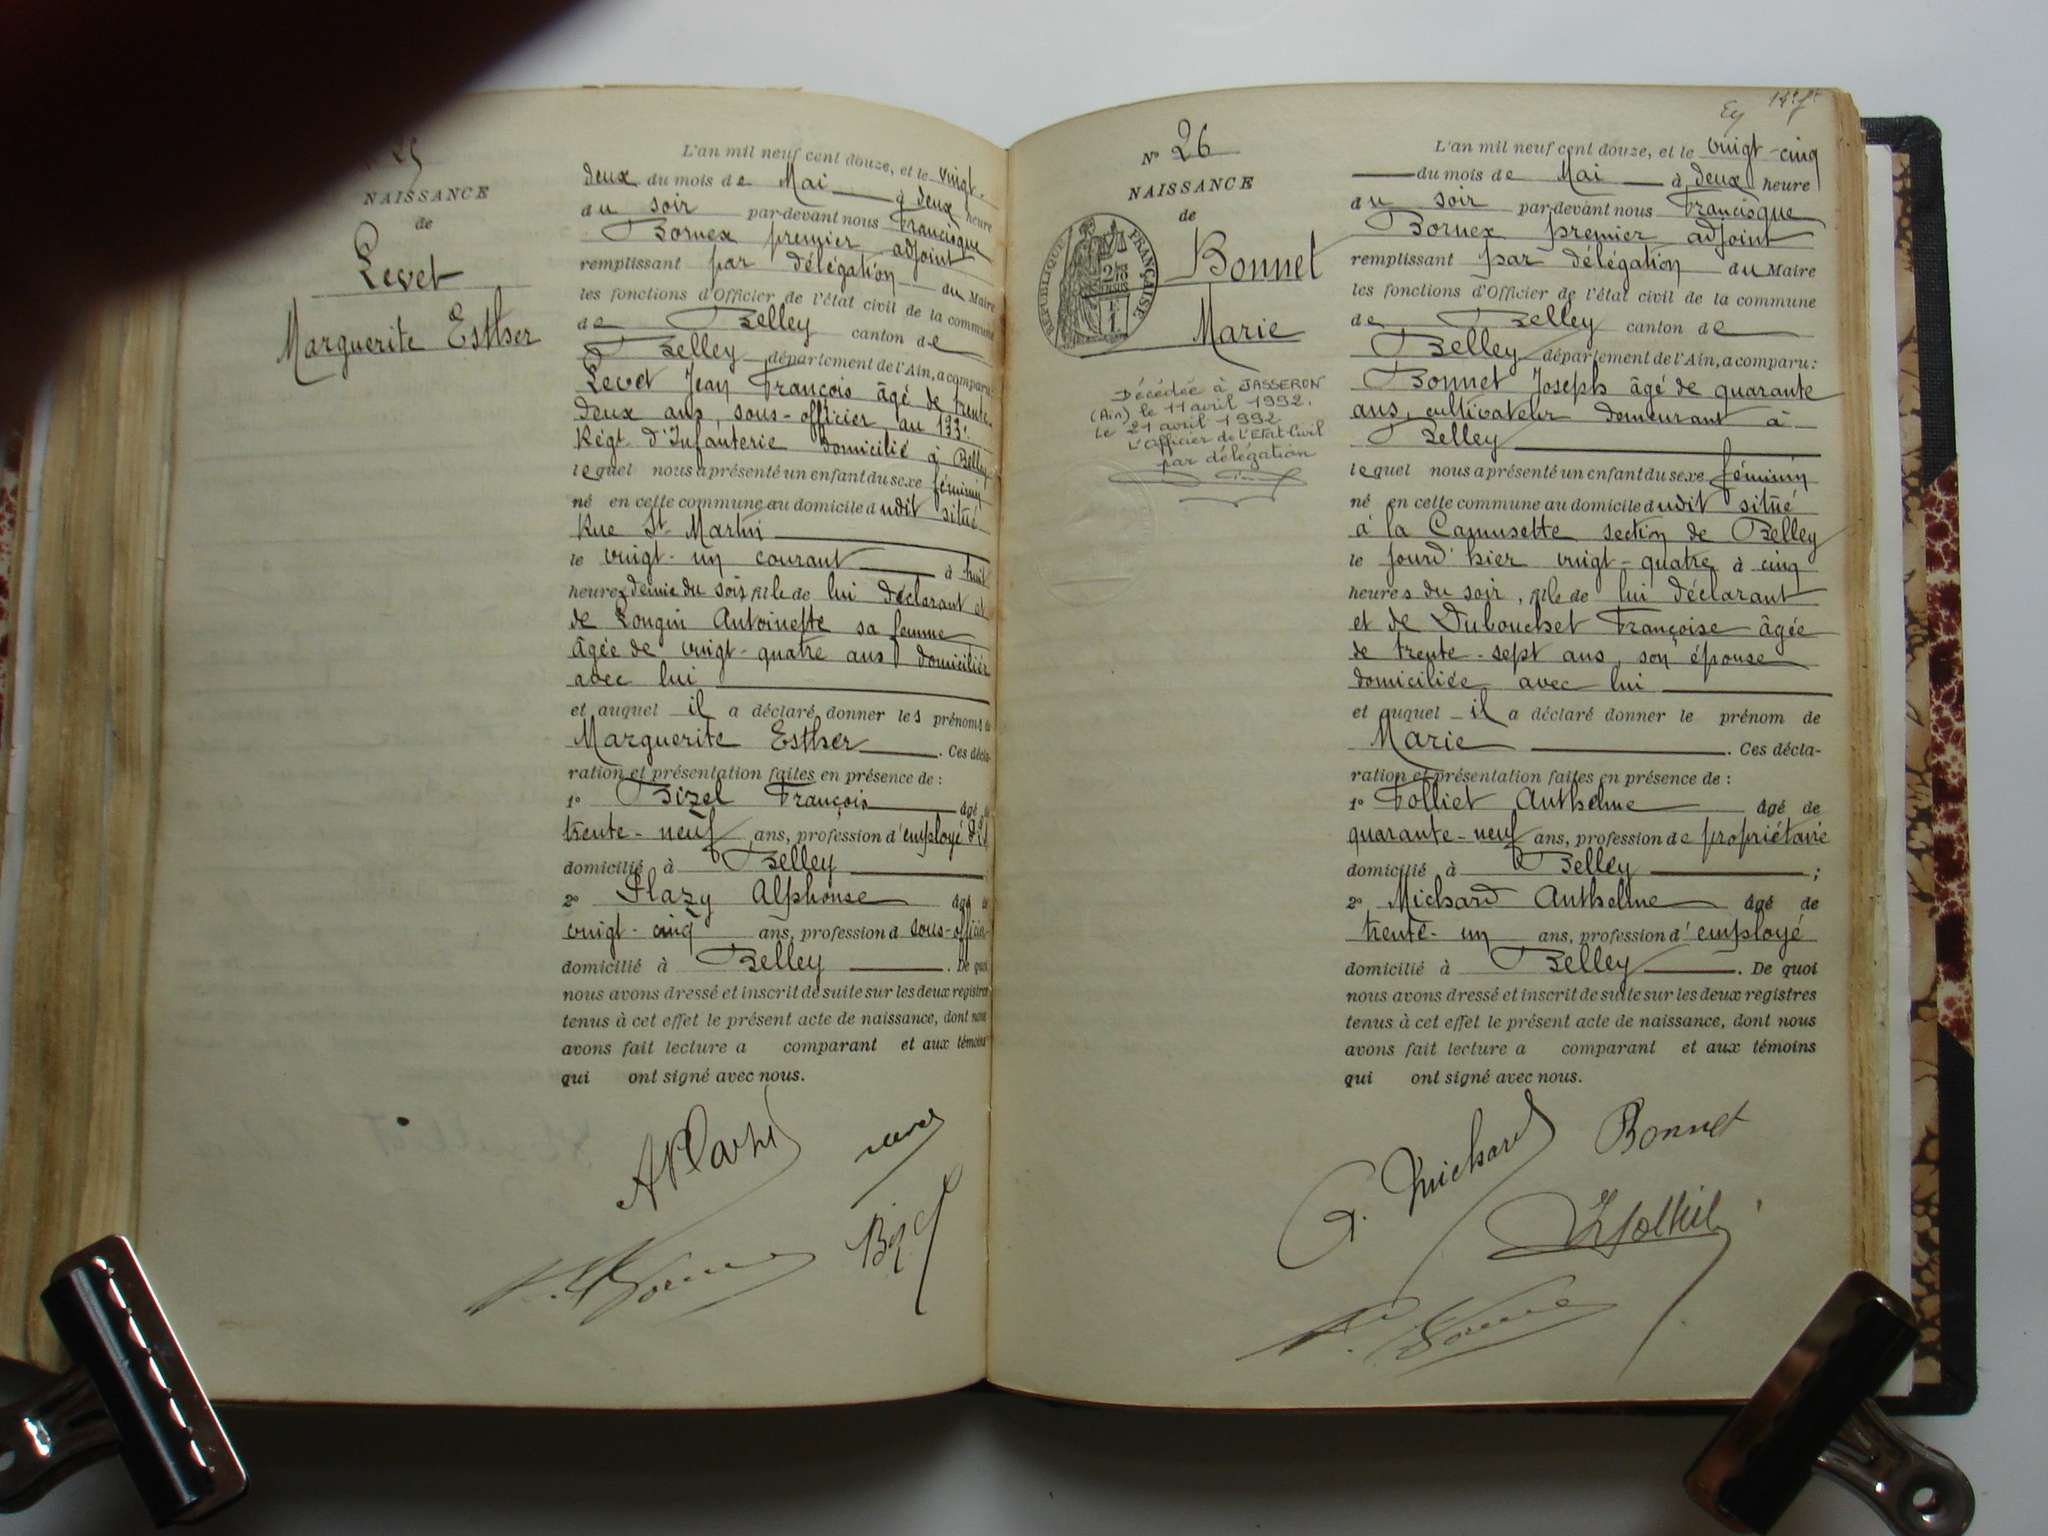 25
NAISSANCE
de
Levet
Marguerite Esther
L'an mil neuf cent douze, et le vingt-
deux du mois de Mai à deux heure
du soir par-devant nous Francisque
Bornex premier adjoint
remplissant par délégation du Maire
les fonctions d'Officier de l'état civil de la commune
de Belley canton de
Belley département de l'Ain, a comparu:
Levet Jean François âgé de trente-
deux ans, sous-officier au 133e
Régt d'Infanterie domicilié à Belley
lequel nous a présenté un enfant du sexe féminin
né en cette commune au domicile dudit situé
Rue St Martin
le vingt-un courant à huit
heures demie du soir, fille de lui déclarant et
de Longin Antoinette sa femme
âgée de vingt-quatre ans domiciliée
avec lui
et auquel il a déclaré donner les prénoms de
Marguerite Esther. Ces décla-
ration et présentation faites en présence de :
1° Bizel François âgé de
trente-neuf ans, profession d'employé
domicilié à Belley
2° Plazy Alphonse âgé de
vingt-cinq ans, profession d sous-officier
domicilié à Belley. De quoi
nous avons dressé et inscrit de suite sur les deux registres
tenus à cet effet le présent acte de naissance, dont nous
avons fait lecture a comparant et aux témoins
qui ont signé avec nous.
N° 26
NAISSANCE
de
Bonnet
Marie
RÉPUBLIQUE FRANÇAISE
Décédée à JASSERON
(Ain) le 11 avril 1992.
Le 21 avril 1992
L'Officier de l'Etat-Civil
par délégation
L'an mil neuf cent douze, et le vingt-cinq
du mois de Mai à deux heure
du soir par-devant nous Francisque
Bornex premier adjoint
remplissant par délégation du Maire
les fonctions d'Officier de l'état civil de la commune
de Belley canton de
Belley département de l'Ain, a comparu:
Bonnet Joseph âgé de quarante
ans, cultivateur demeurant à
Belley
lequel nous a présenté un enfant du sexe féminin
né en cette commune au domicile dudit situé
à la Camusette section de Belley
le jourd'hier vingt-quatre à cinq
heures du soir, fille de lui déclarant
et de Dubouchet Françoise âgée
de trente-sept ans, son épouse
domiciliée avec lui
et auquel il a déclaré donner le prénom de
Marie. Ces décla-
ration et présentation faites en présence de :
1° Folliet Anthelme âgé de
quarante-neuf ans, profession de propriétaire
domicilié à Belley ;
2° Michard Anthelme âgé de
trente-un ans, profession d'employé
domicilié à Belley. De quoi
nous avons dressé et inscrit de suite sur les deux registres
tenus à cet effet le présent acte de naissance, dont nous
avons fait lecture a comparant et aux témoins
qui ont signé avec nous.
Michard Bonnet